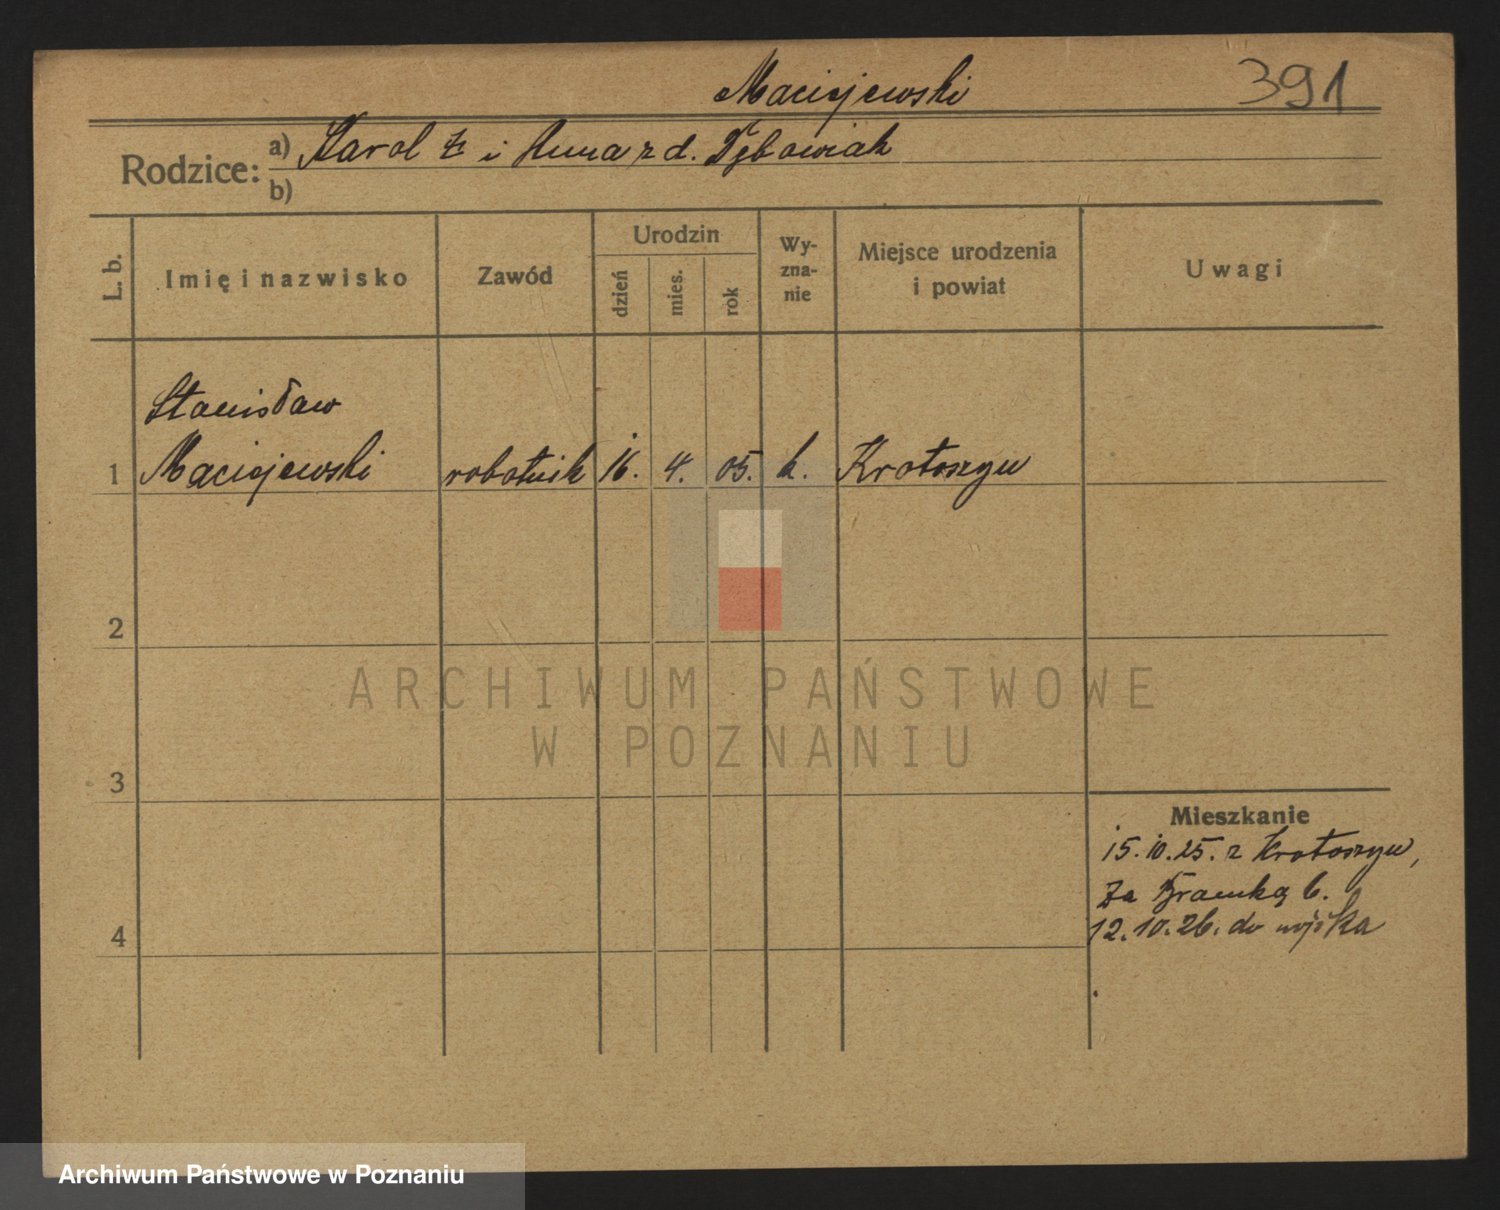 Maciejewski
391
Rodzice: a) Karol i Anna z d. Dębowiak
b)
L. b. Imię i nazwisko Zawód Urodzin dzień mies. rok Wyznanie Miejsce urodzenia i powiat Uwagi
Stanisław
1 Maciejewski robotnik 16. 4. 05. k. Krotoszyn
2
ARCHIWUM PAŃSTWOWE
W POZNANIU
3
Mieszkanie
15.10.25. z Krotoszyn,
Za Bramką 6.
4
12.10.26. do wojska
Archiwum Państwowe w Poznaniu